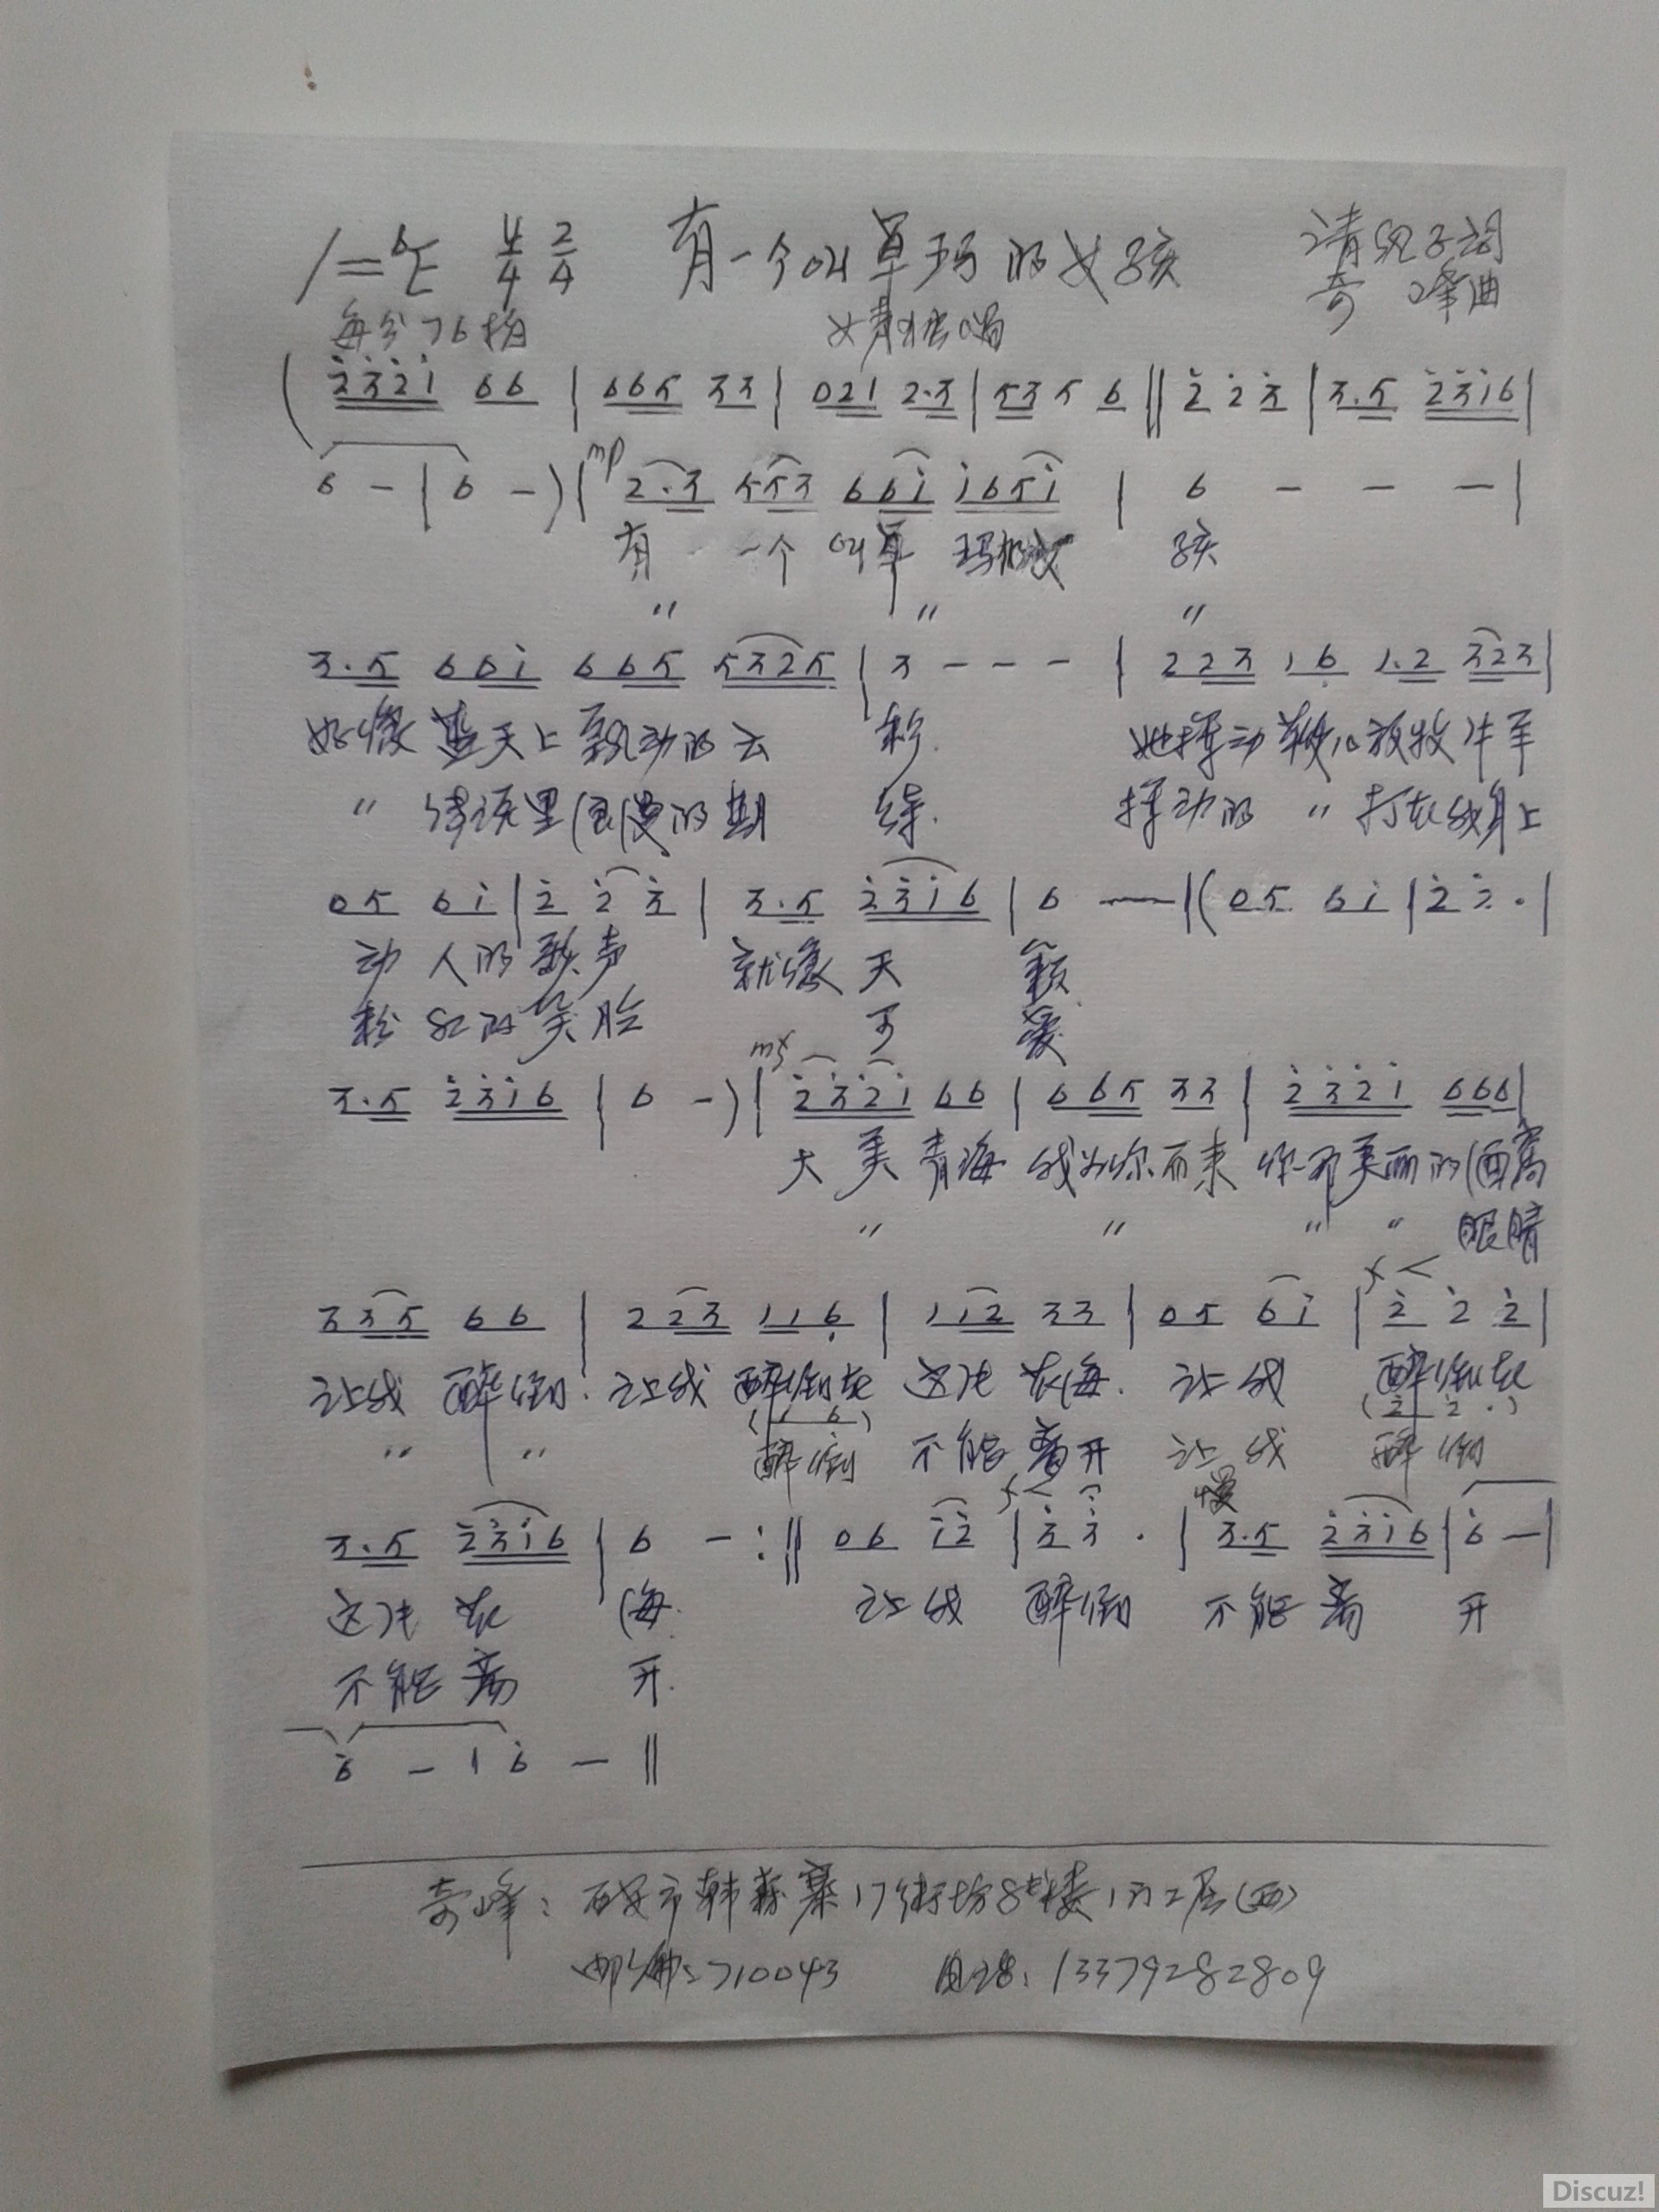 1=♭E 4/4 2/4 有一个叫卓玛的女孩 清倪子词
每分76拍 女声独唱 奇峰曲
( 2̇3̇2̇1̇ 66 | 665 33 | 021 2·3 | 53 5 6 || 2̇ 2̇ 3̇ | 3·5 2̇3̇1̇6 |
6 - | 6 - ) | mp 2·3 553 661̇ 1̇651̇ | 6 - - - |
有 一个 叫卓 玛的女 孩
〃 〃 〃
3·5 661̇ 665 5325 | 3 - - - | 223 16̣ 1·2 323 |
好像 蓝天上飘动的云 彩. 她挥动鞭儿放牧牛羊
〃 诗境里浪漫的期 待. 挥动的 〃 打在我身上
05 61̇ | 2̇ 2̇ 3̇ | 3·5 2̇3̇1̇6 | 6 — | ( 05 61̇ | 2̇ 2̇ · |
动 人的 歌声 就像 天 籁
粉 红的 笑脸 可 爱
3·5 2̇3̇1̇6 | 6 - ) | mf 2̇3̇2̇1̇ 66 | 665 33 | 2̇3̇2̇1̇ 666 |
大 美 青海 我为你而来 你那美丽的酒窝
〃 〃 〃 〃 眼睛
335 66 | 223 116̣ | 112 33 | 05 61̇ | f < 2̇ 2̇ 2̇ |
让我 醉倒. 让我 醉倒在 这片 花海. 让 我 醉倒在
(1 6) (2̇ 2̇ ·)
〃 〃 醉倒 不能 离开 让 我 醉 倒
3·5 2̇3̇1̇6 | 6 - :|| 06 1̇2̇ | f < 3̇ 3̇ · | 慢 3·5 2̇3̇1̇6 | 6̇ — |
这片 花 海. 让 我 醉倒 不能 离 开
不能 离 开.
6̇ - | 6̇ - ||
奇峰: 西安市韩森寨17街坊8#楼1门2层(西)
邮编:710043 电话:13379282809
Discuz!